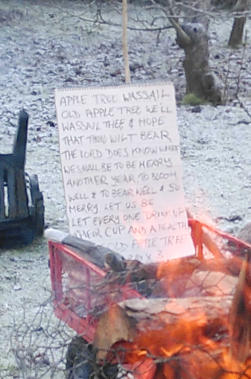 APPLE TREE WASSAIL
OLD APPLE TREE WE'LL
WASSAIL THEE & HOPE
THAT THOU WILT BEAR
THE LORD DOES KNOW WHERE
WE SHALL BE TO BE MERRY
ANOTHER YEAR TO BLOOM
WELL & TO BEAR WELL & SO
MERRY LET US BE
LET EVERY ONE DRINK UP
CUP AND A HEALTH
OLD APPLE TREE